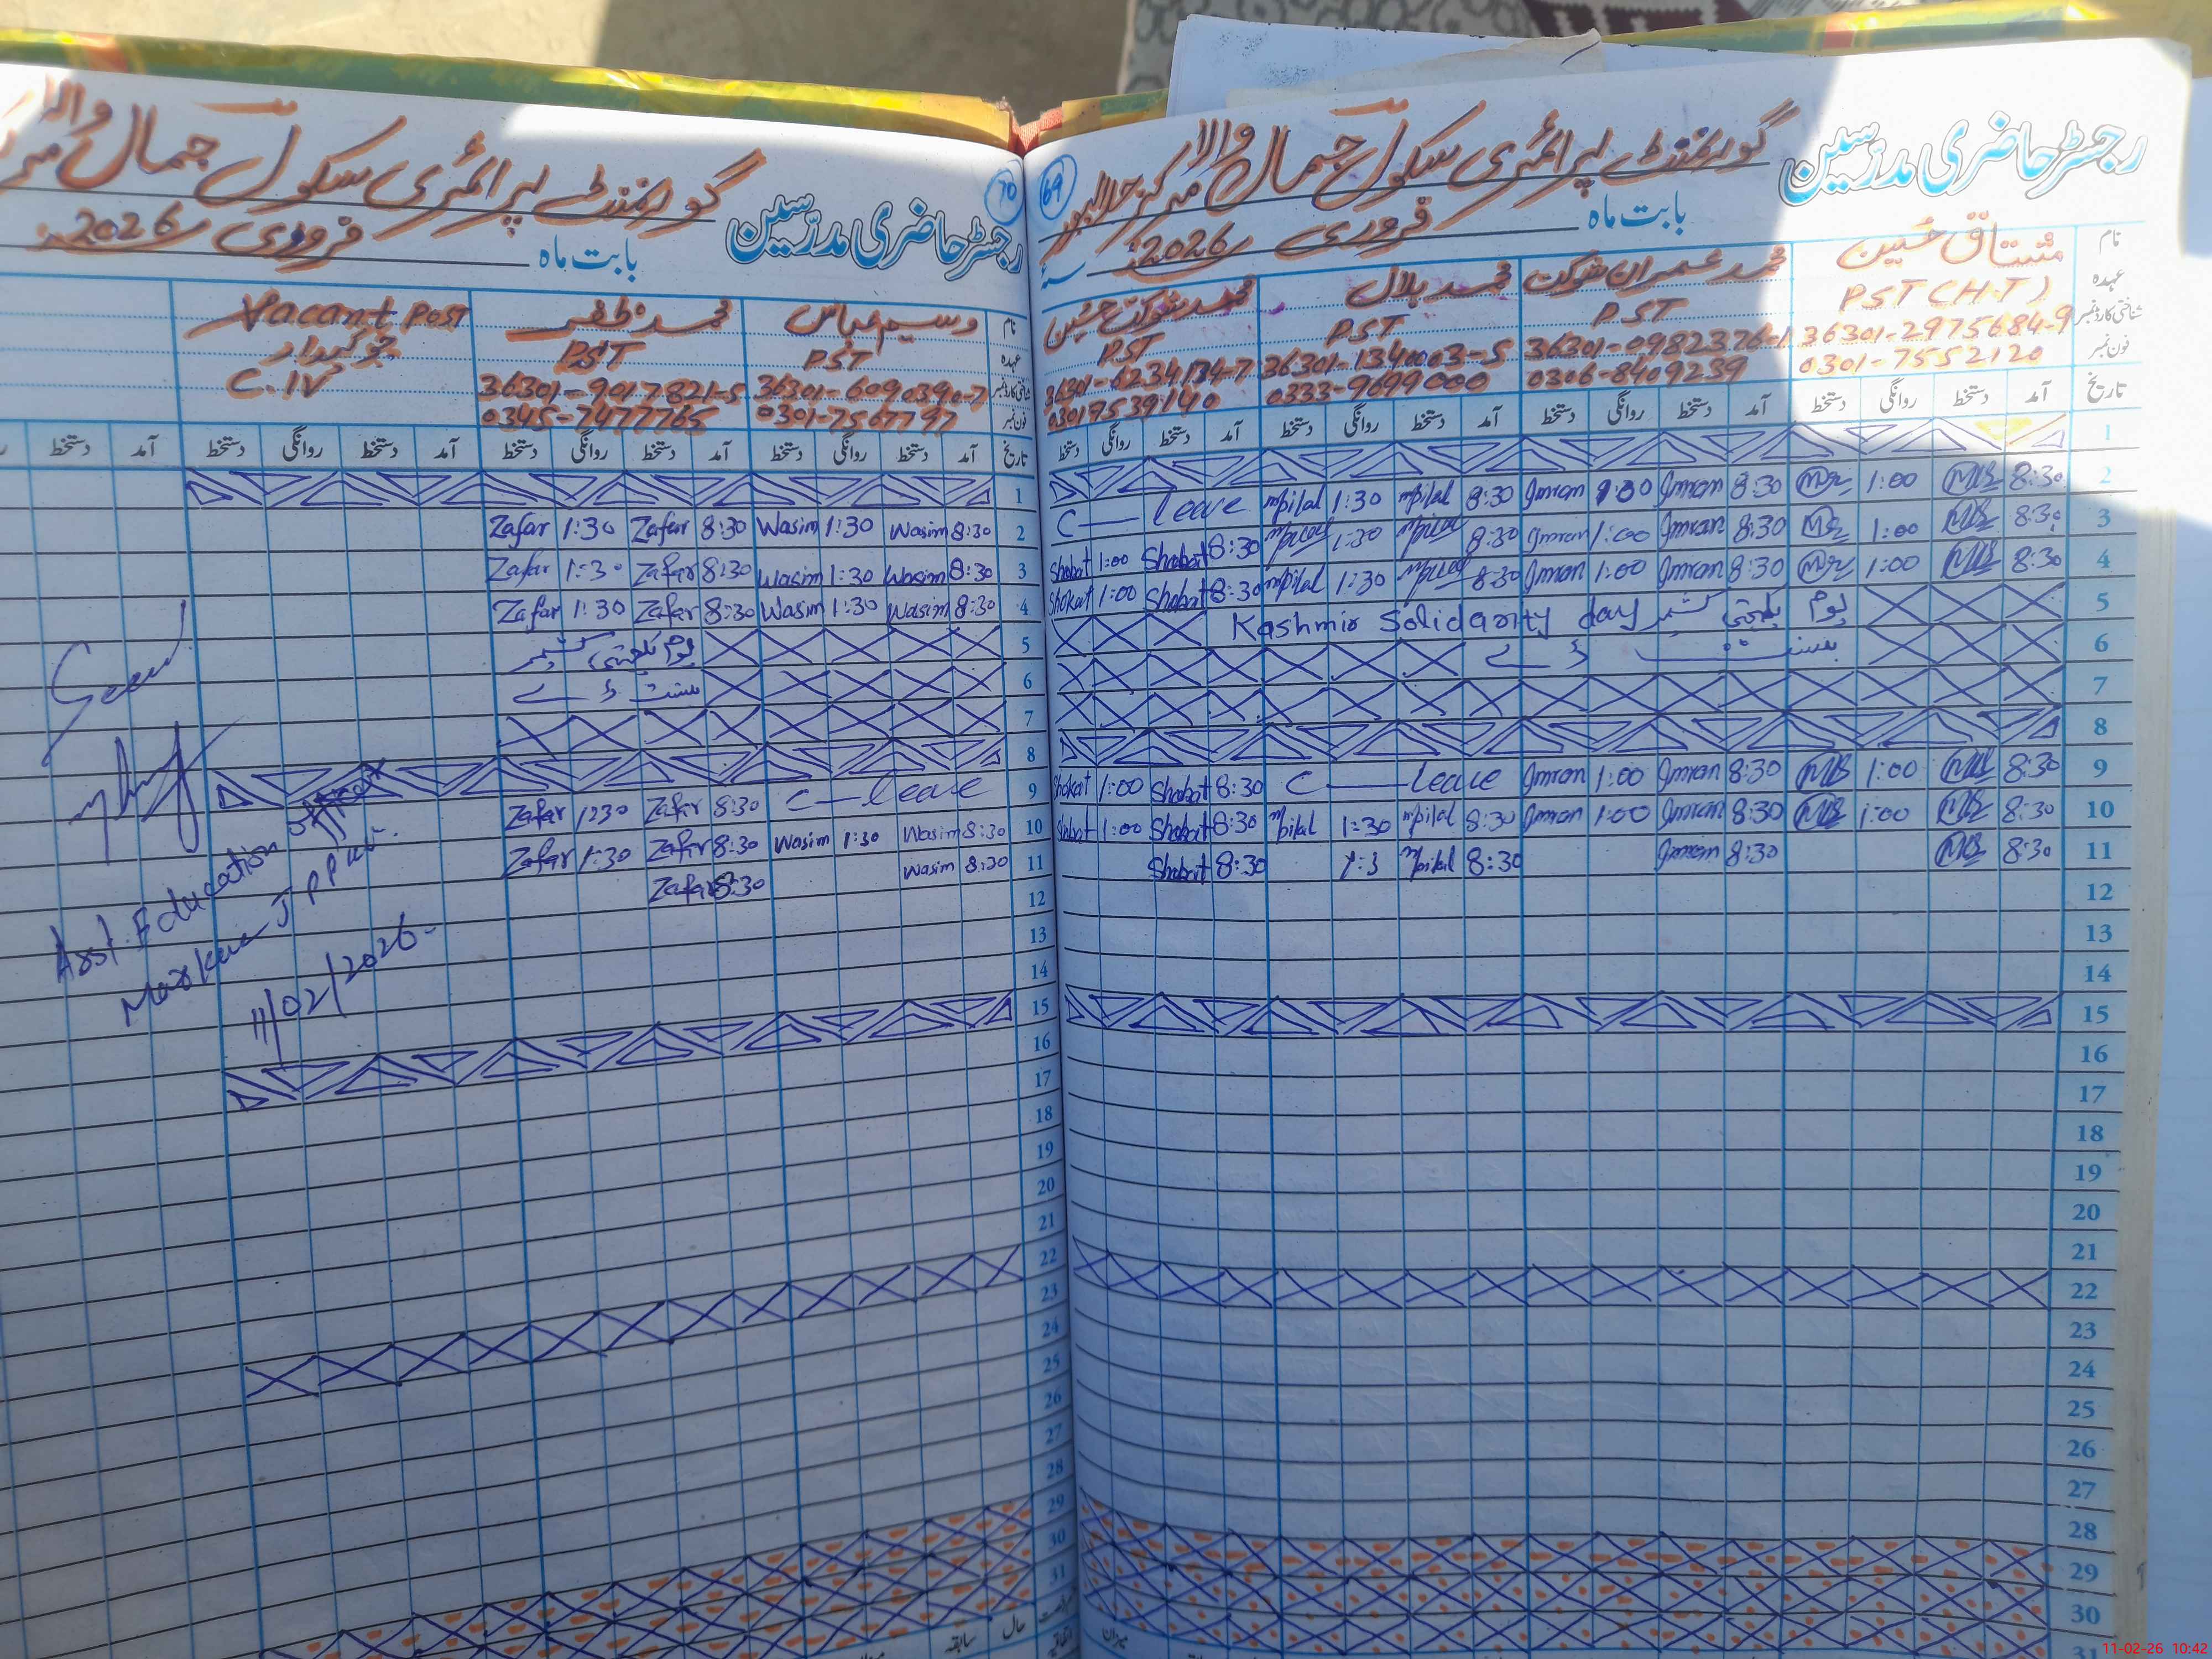 رجسٹر حاضری مدرسین
گورنمنٹ پرائمری سکول جمال والا مرکز جلالپور
بابت ماہ فروری 2026ء
69
نام مشتاق حسین محمد عمران شوکت محمد بلال محمد شوکت حسین
عہدہ PST (H.T) PST PST PST
شناختی کارڈ نمبر 36301-2975684-9 36301-0982376-1 36301-1340003-5 36301-6234134-7
فون نمبر 0301-7552120 0306-8409239 0333-9699000 03019539140
تاریخ آمد دستخط روانگی دستخط آمد دستخط روانگی دستخط آمد دستخط روانگی دستخط آمد دستخط روانگی دستخط
1
C— leave mBilal 1:30 mBilal 8:30 Imran 1:30 Imran 8:30 1:00 8:30 2
Shokat 1:00 Shokat 8:30 1:30 8:30 Imran 1:00 Imran 8:30 1:00 8:30 3
Shokat 1:00 Shokat 8:30 mBilal 1:30 8:30 Imran 1:00 Imran 8:30 1:00 8:30 4
Kashmir Solidarity day یوم یکجہتی کشمیر 5
بسنت ڈے 6
7
8
Shokat 1:00 Shokat 8:30 C— Leave Imran 1:00 Imran 8:30 1:00 8:30 9
Shokat 1:00 Shokat 8:30 mBilal 1:30 mBilal 8:30 Imran 1:00 Imran 8:30 1:00 8:30 10
Shokat 8:30 1:3 mBilal 8:30 Imran 8:30 8:30 11
12
13
14
15
16
17
18
19
20
21
22
23
24
25
26
27
28
29
30
31
میزان
رجسٹر حاضری مدرسین
گورنمنٹ پرائمری سکول جمال والا
بابت ماہ فروری 2026ء
70
نام وسیم عباس محمد ظفر Vacant Post
عہدہ PST PST چوکیدار
شناختی کارڈ نمبر 36301-6090390-7 36301-9017821-5 C.IV
فون نمبر 0301-7567797 0345-7477765
تاریخ آمد دستخط روانگی دستخط آمد دستخط روانگی دستخط آمد دستخط روانگی دستخط آمد دستخط
1
Zafar 1:30 Zafar 8:30 Wasim 1:30 Wasim 8:30 2
Zafar 1:30 Zafar 8:30 Wasim 1:30 Wasim 8:30 3
Zafar 1:30 Zafar 8:30 Wasim 1:30 Wasim 8:30 4
یوم یکجہتی کشمیر 5
بسنت ڈے 6
7
8
Zafar 1230 Zafar 8:30 C— leave 9
Zafar 1:30 Zafar 8:30 Wasim 1:30 Wasim 8:30 10
Zafar 8:30 Wasim 8:30 11
12
13
14
15
16
17
18
19
20
21
22
23
24
25
26
27
28
29
30
31
حال سابقہ
Seen
Asst. Education officer
Markaz J P P W
11/02/2026
11-02-26 10:42